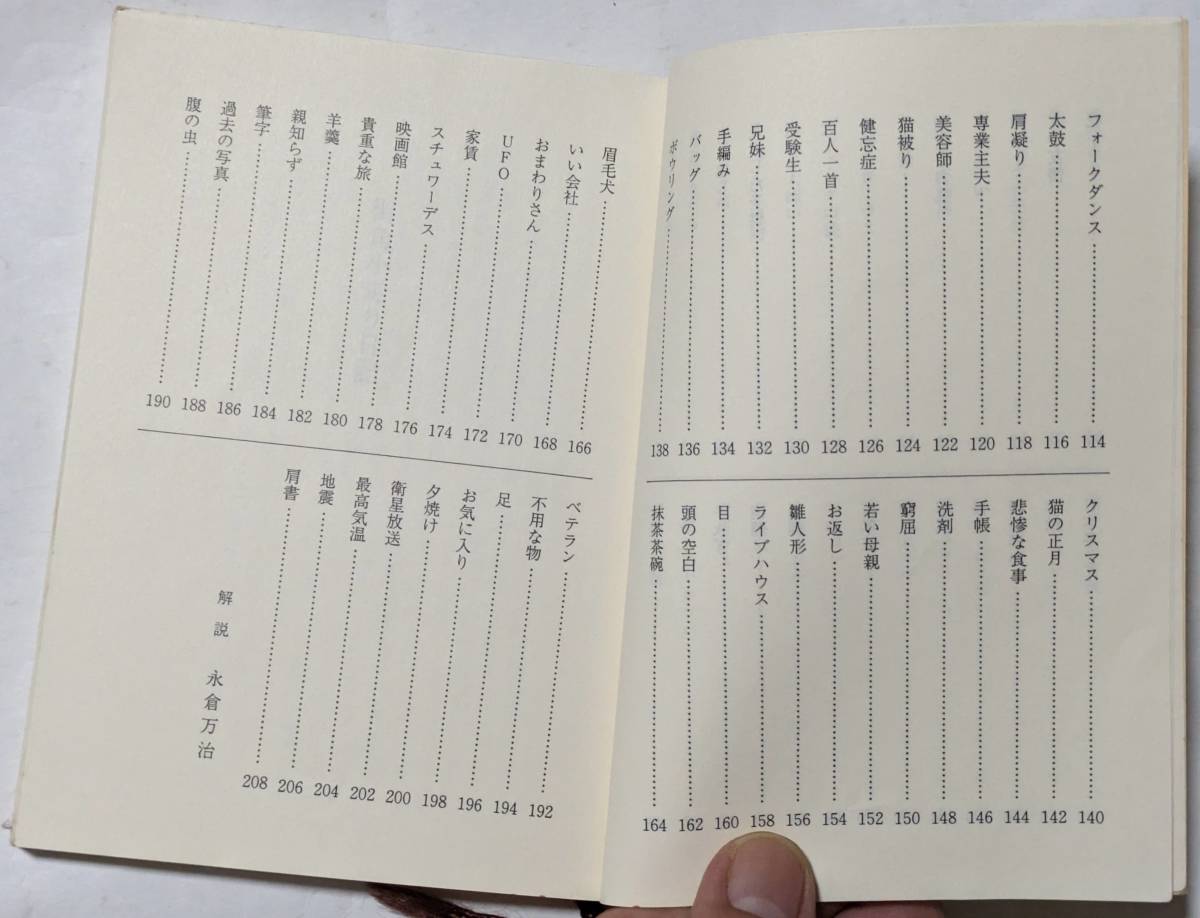 フォークダンス……114
太鼓……116
肩凝り……118
専業主夫……120
美容師……122
猫被り……124
健忘症……126
百人一首……128
受験生……130
兄妹……132
手編み……134
バッグ……136
ボウリング……138
クリスマス……140
猫の正月……142
悲惨な食事……144
手帳……146
洗剤……148
窮屈……150
若い母親……152
お返し……154
雛人形……156
ライブハウス……158
目……160
頭の空白……162
抹茶茶碗……164
眉毛犬……166
いい会社……168
おまわりさん……170
UFO……172
家賃……174
スチュワーデス……176
映画館……178
貴重な旅……180
羊羹……182
親知らず……184
筆字……186
過去の写真……188
腹の虫……190
ベテラン……192
不用な物……194
足……196
お気に入り……198
夕焼け……200
衛星放送……202
最高気温……204
地震……206
肩書……208
解説　永倉万治